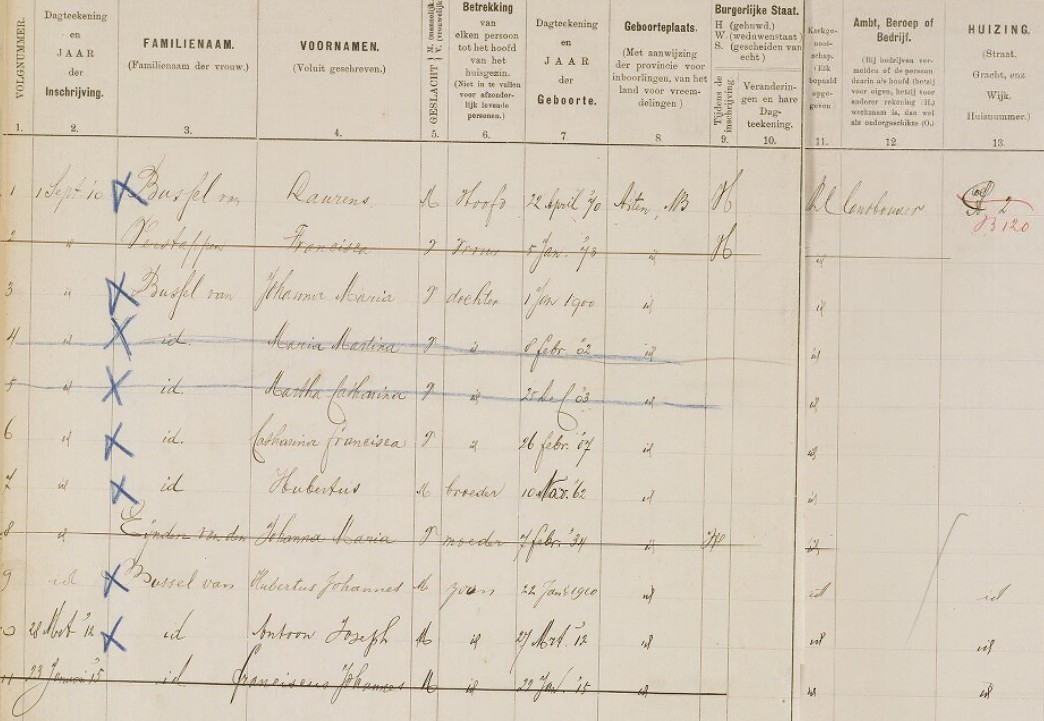 VOLGNUMMER. Dagteekening en JAAR der Inschrijving. FAMILIENAAM. (Familienaam der vrouw.) VOORNAMEN. (Voluit geschreven.) GESLACHT M. (mannelijk) V. (vrouwelijk) Betrekking van elken persoon tot het hoofd van het huisgezin. (Niet in te vullen voor afzonderlijk levende personen.) Dagteekening en JAAR der Geboorte. Geboorteplaats. (Met aanwijzing der provincie voor inboorlingen, van het land voor vreemdelingen) Burgerlijke Staat. H (gehuwd.) W. (weduwenstaat) S. (gescheiden van echt) Tijdens de inschrijving Veranderingen en hare Dagteekening. Kerkgenootschap. (Elk bepaald opgegeven) Ambt, Beroep of Bedrijf. HUIZING. (Straat. Gracht, enz Wijk. Huisnummer.)
1. 2. 3. 4. 5. 6. 7. 8. 9. 10. 11. 12. 13.
1 1 Sept. '10 Bussel van Laurens M Hoofd 22 April '70 Asten, NB H landbouwer 2
B 120
2 " Verstappen Francisca V Vrouw 5 Jan. '73 id H id
3 " Bussel van Johanna Maria V dochter 1 Jan 1900 id id
4 id id. Maria Martina V id 8 febr. '02 id id
5 id id. Martha Catharina V id 25 Dec '03 id id
6 id id. Catharina Francisca V id 26 febr. '07 id id
7 id id Hubertus M broeder 10 Nov. '62 id id
8 id Eijnden van den Johanna Maria V moeder 7 febr. '34 id W id
9 id Bussel van Hubertus Johannes M zoon 22 1910 id id id
28 Mrt '12 id Antoon Joseph M id 27 Mrt. '12 id id id
11 23 Januari '15 id Franciscus Johannes M id 22 Jan. '15 id id id